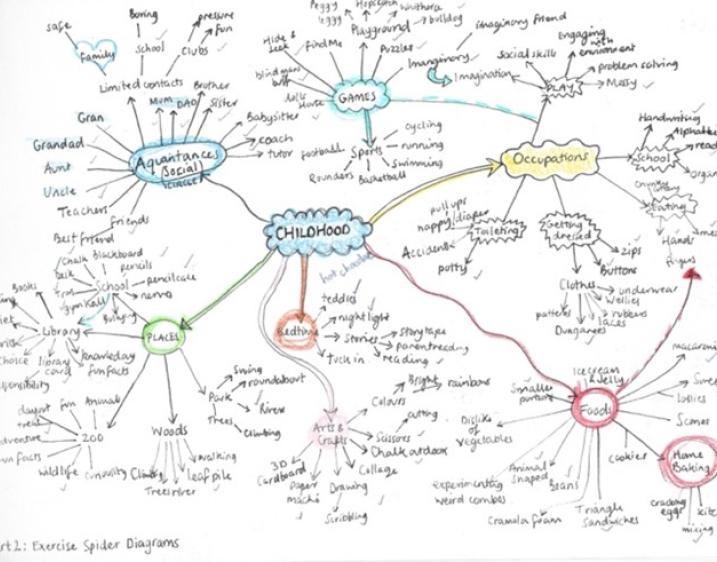 safe
Family
Boring
School
pressure
fun
Clubs
Limited contacts
Mum
DAD
Brother
Sister
Babysitter
coach
tutor
Gran
Grandad
Aunt
Uncle
Teachers
friends
Best friend
Aquantances
(Social)
CIRCLE
Peggy
leggy
Hopscotch
bulldog
Playground
Hide &
seek
find Me
Puzzles
blind mans
buff
Dolls
House
GAMES
Imaginary
imaginary friend
Imagination
Sports
football
Rounders
Basketball
cycling
running
swimming
Social skills
Engaging
with
environment
problem solving
Messy
PLAY
Occupations
School
Handwriting
Alphabet
read
Eating
Hands
fingers
Toileting
pull ups
nappy/diaper
Accidents
potty
Getting
dressed
zips
Buttons
Clothes
underwear
Wellies
rubbers
laces
patterns
Dungarees
CHILDHOOD
hot chocolate
Bedtime
teddies
night light
Stories
story tape
parent reading
reading
Tuck in
PLACES
School
Chalk
blackboard
desk
pencils
pencil case
nerves
Bullying
gym hall
Library
Books
library
card
knowledge
fun facts
Zoo
dayout
fun
Animals
Wildlife
curiosity
Woods
Climbing
Trees
river
leaf pile
walking
Park
Swing
roundabout
River
Trees
Climbing
Arts &
Crafts
Colours
Bright
rainbows
cutting
Scissors
Chalk outdoor
Collage
Drawing
Scribbling
Paper
maché
3D
Cardboard
Foods
Icecream
& Jelly
Smaller
portions
Dislike
of
vegetables
experimenting
weird combos
Animal
shaped
Beans
Triangle
Sandwiches
cookies
Scones
Home
Baking
cracking
eggs
mixing
rt 2: Exercise Spider Diagrams